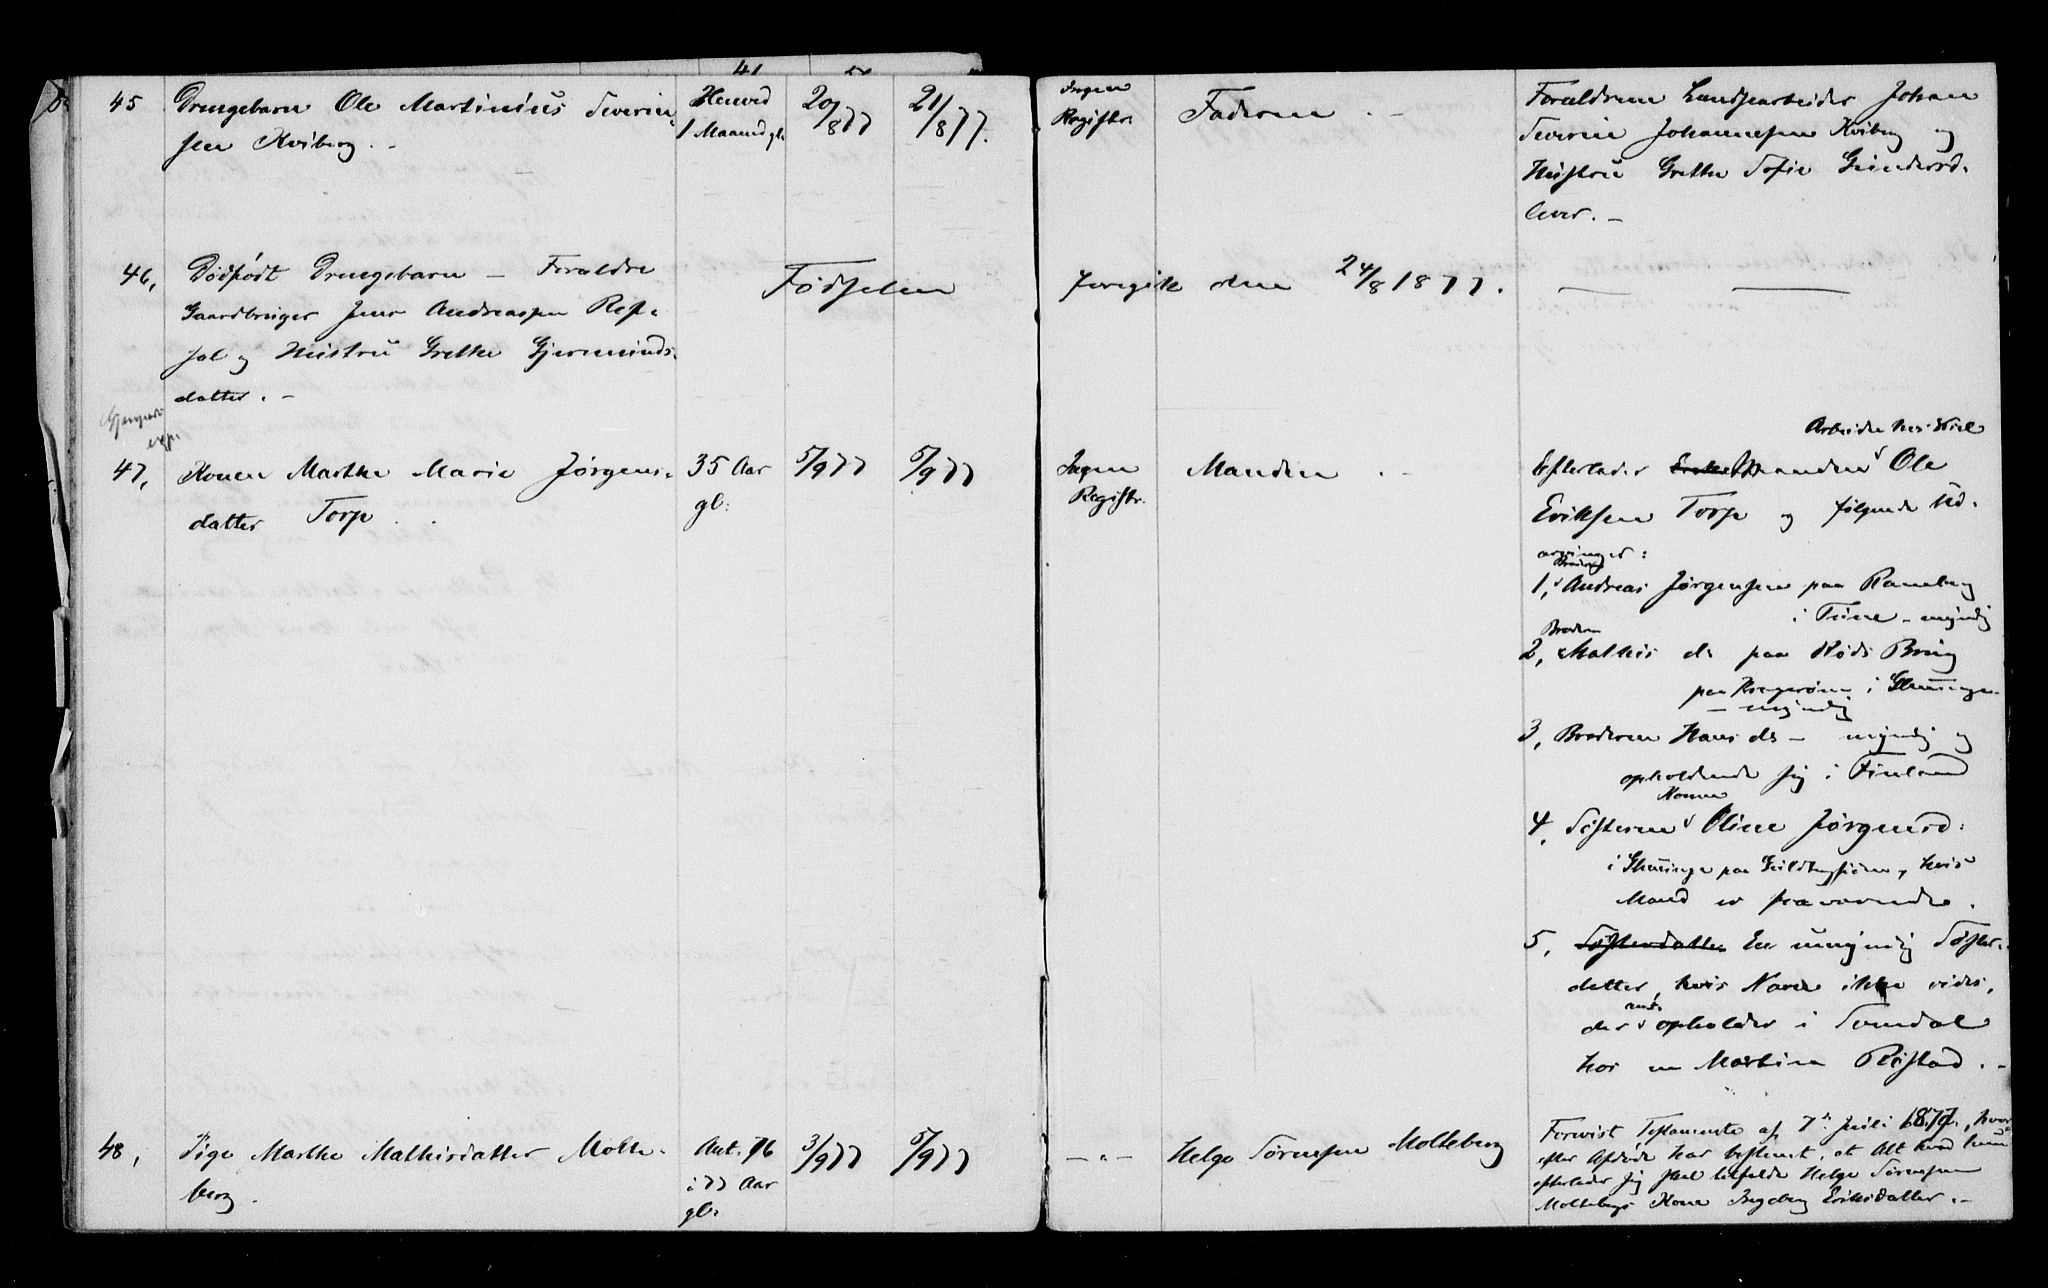 45 Drengebarn Ole Martinius Severin-
sen Kviberg. -
Henved
1 Maaned gl.
20/8 77
21/8 77.
Ingen
Registr.
Faderen -
Forældrene Landsarbeider Johan
Severin Johannesen Kviberg og
Hustru Grethe Sofie Gundersd.
lever. -
46, Dødfødt Drengebarn - Forældre
Gaardbruger Jens Andreassen Rep-
sal og Hustru Grethe Gjermunds-
datter. -
Fødselen foregik den 24/8 1877.
47, Konen Marthe Marie Jørgens-
datter Torp .
35 Aar
gl:
5/9 77
5/9 77
Ingen
Registr.
Manden -
Efterlader Manden Ole
Eriksen Torp og følgende Ud-
arvinger:
Broderen
1, Andreas Jørgensen paa Rameberg
i Tune - myndig
Broderen
2, Mathis ds paa Røds Brug
paa Kragerøen i Glemminge
- myndig
3, Broderen Hans ds - myndig og
opholdende sig i Finland
Konen
4, Søsteren Oline Jørgensd:
i Glemminge paa, hvis
Mand er fraværende.
5, Søsterdatter En umyndig Søster-
datter, hvis Navn ikke vides,
der opholder i Somdal
hos en Martin Røstad. -
48, Pige Marthe Mathisdatter Molte-
berg.
Ant. 76
i 77 Aar
gl:
3/9 77
5/9 77
- " -
Helge Sørensen Molteberg
Forevist Testamente af 7de Juli 1870, hvor-
efter Afdøde har bestemt, at Alt hvad hun
efterlader sig skal tilfalde Helge Sørensen
Moltebergs Kone Ingeborg Eriksdatter. -